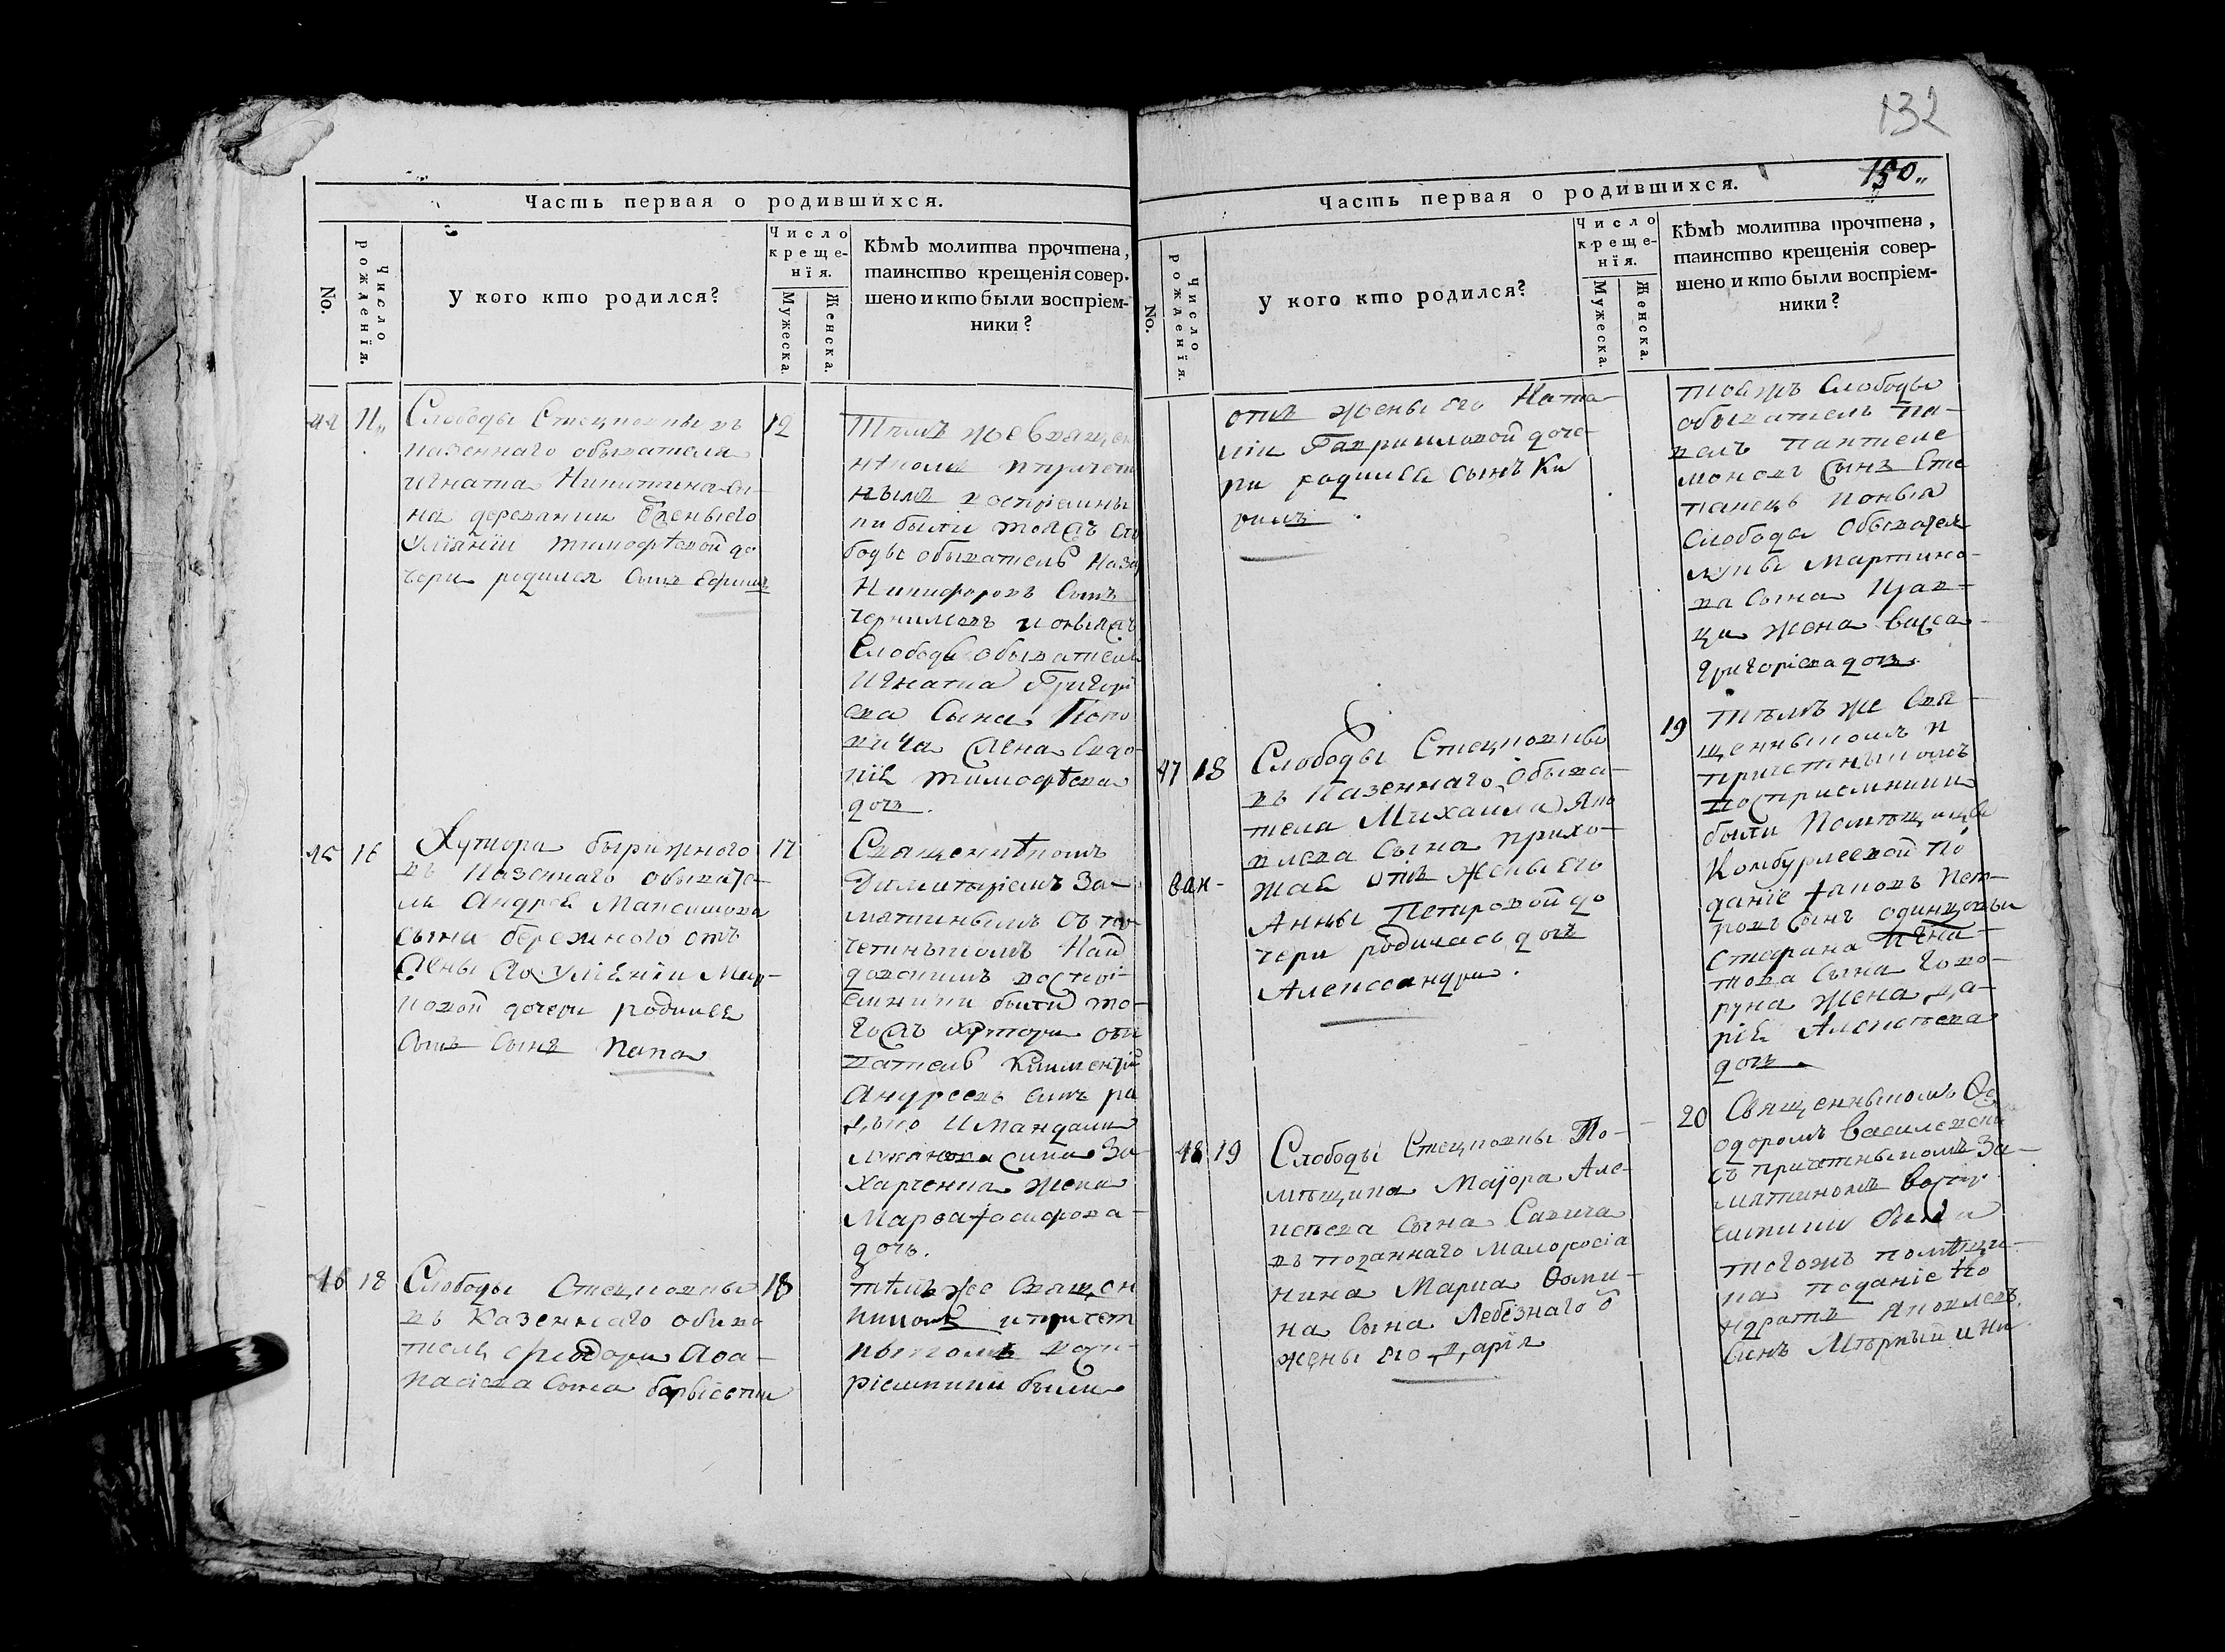 132
150„
Часть первая о родившихся.
No.
Число рожденїя.
У кого кто родился?
Число
креще-
нїя.
Мужеска.
Женска.
Кѣмъ молитва прочтена,
таинство крещенія совер-
шено и кто были воспріем-
ники?
44 11„
Слободы Стецковки въ
казеннаго обывателя
Игната Никитина сы-
на
Уліяніи Тимофѣевой до
чери родился сынъ Ефимъ
12
Тѣмъ же священ
никомъ и причет
нымъ воспріемни
ки были тояжъ сло
боды обыватель Наза
Никифоровъ сынъ
и оныяжъ
Слободы обывателя
Игната Григорі
ева сына Попо
вича жена Євдо
кія Тимофѣева
дочь.
45 16
Хутора бърижного
въ казеннаго обывате-
ля Андрея Максимова
сына бережного отъ
жены его Уліяніи Мар-
ковой дочери родился
сынъ сынъ
17
Священикомъ
Димитріемъ За-
мятинымъ съ при-
четникомъ Най
довскимъ воспрі-
емники были то-
гожъ хутора обы
ватель Климентій
Андреевъ сынъ
и
сина За-
харченка жена
Марѳа Іосифова
дочь.
46 18
Слободы Стецковки
въ Казеннаго обыва
теля Феодора Афа-
насіева сына
18
тѣмъ же священ
никомъ и причет
никомъ восп-
ріемники были
Часть первая о родившихся.
No.
Число рожденїя.
У кого кто родился?
Число
креще-
нїя.
Мужеска.
Женска.
Кѣмъ молитва прочтена,
таинство крещенія совер-
шено и кто были воспріем-
ники?
отъ жены его Ната-
ліи Гавриловой доче-
ри родился сынъ Ки
рилъ
тояжъ Слободы
обыватель Па-
велъ Пантеле
моновъ сынъ Сте
панецъ и оныя
слободы обывателя
Луки Мартино-
ва сына Крав-
ца жена Васса
Григоріева дочь.
47 18
Слободы Стецковки
въ казеннаго обыва-
теля Михаила Яко
влева сына прихо-
жай отъ жены его
Анны Петровой до
чери родилась дочь
Александра.
19
тѣмъ же свя-
щенникомъ и
причетникомъ
воспріемники
были Помѣщицы
Комбурлеевой по
даніе Іаковъ Пет-
ровъ сынъ одинцовъ и
Стефана Игна-
това сына Гово-
руна жена Да-
рія Алексѣева
дочь
48 19
Слободы Стецковки По-
мѣщика Маіора Але-
ксѣева сына Савича
въ поданнаго Малоросія
нина Марка Фоми-
на сына Лебезнаго ѿ
жены его Дарія
20
Священникомъ Ѳе
одоромъ Василевскі
съ причетникомъ За-
мятиномъ воспр
емники были
тогожъ помѣщи-
ка поданіе Ко
ндратъ Яковлевъ
сынъ Мѣрный и Ни